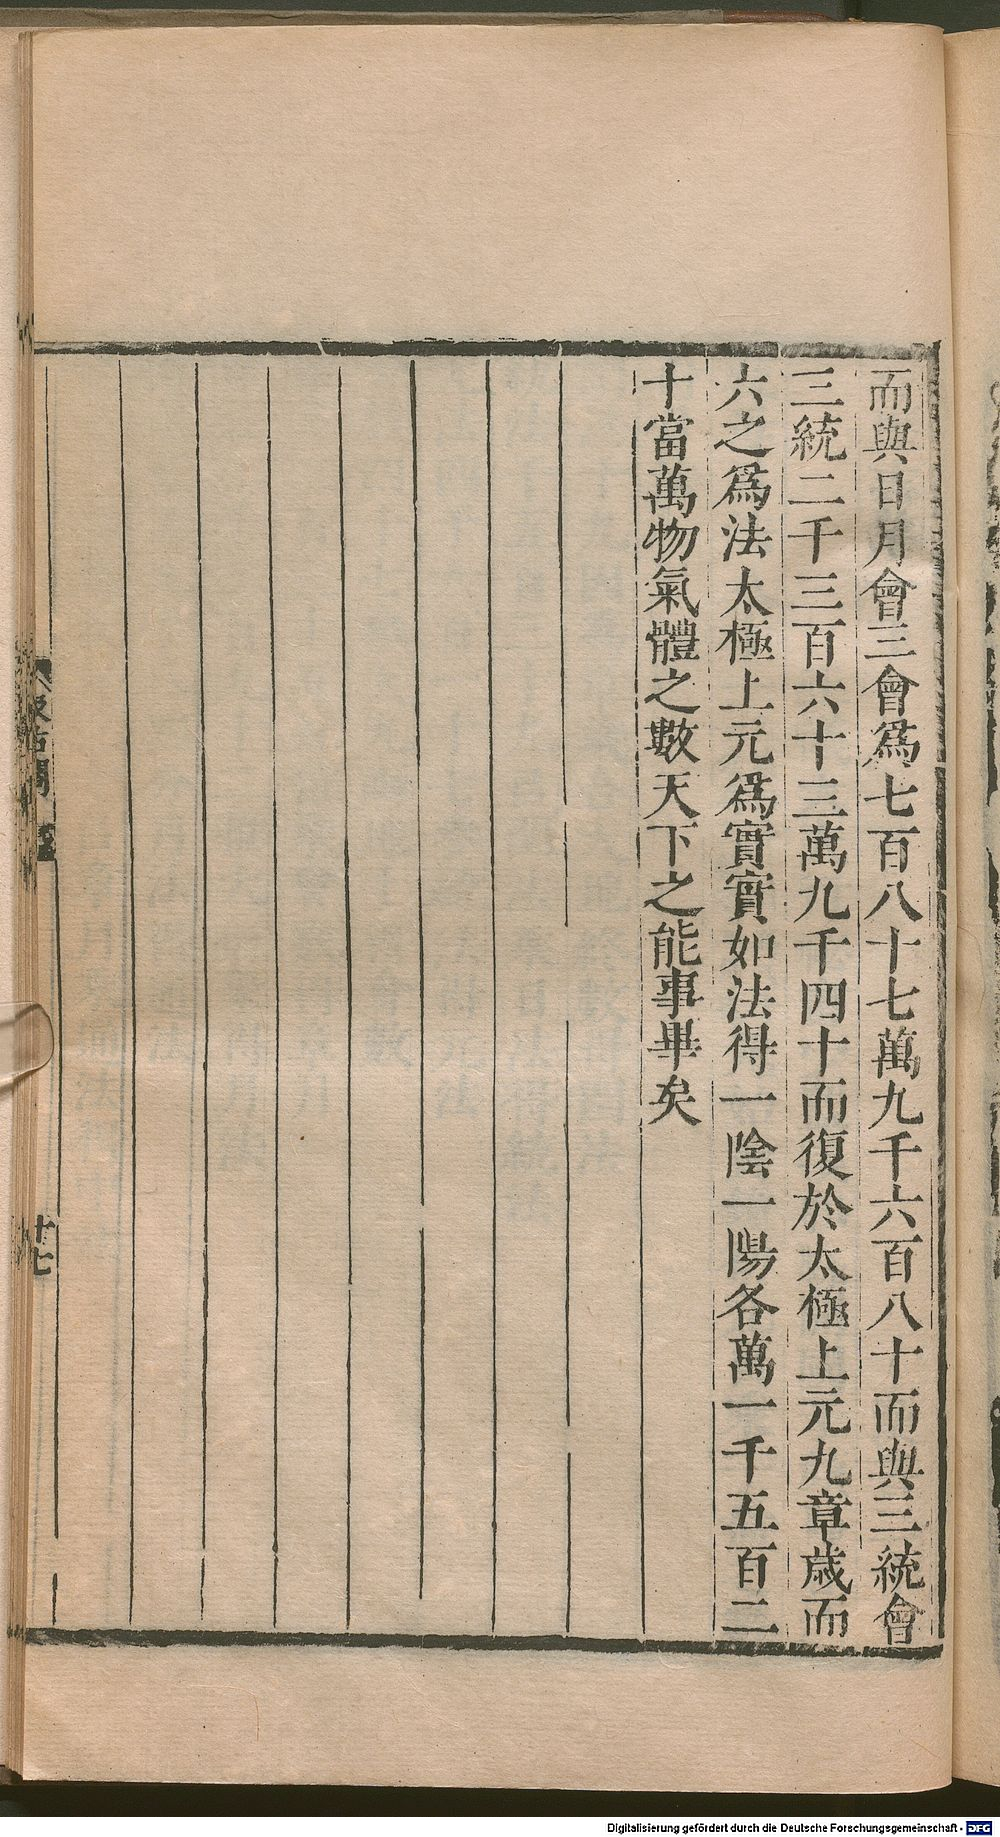 而與日月會三會爲七百八十七萬九千六百八十而與三統會
三統二千三百六十三萬九千四十而復於太極上元九章歲而
六之爲法太極上元爲實實如法得一陰一陽各萬一千五百二
十當萬物氣體之數天下之能事畢矣
汲古閣
十七
Digitalisierung gefördert durch die Deutsche Forschungsgemeinschaft - DFG